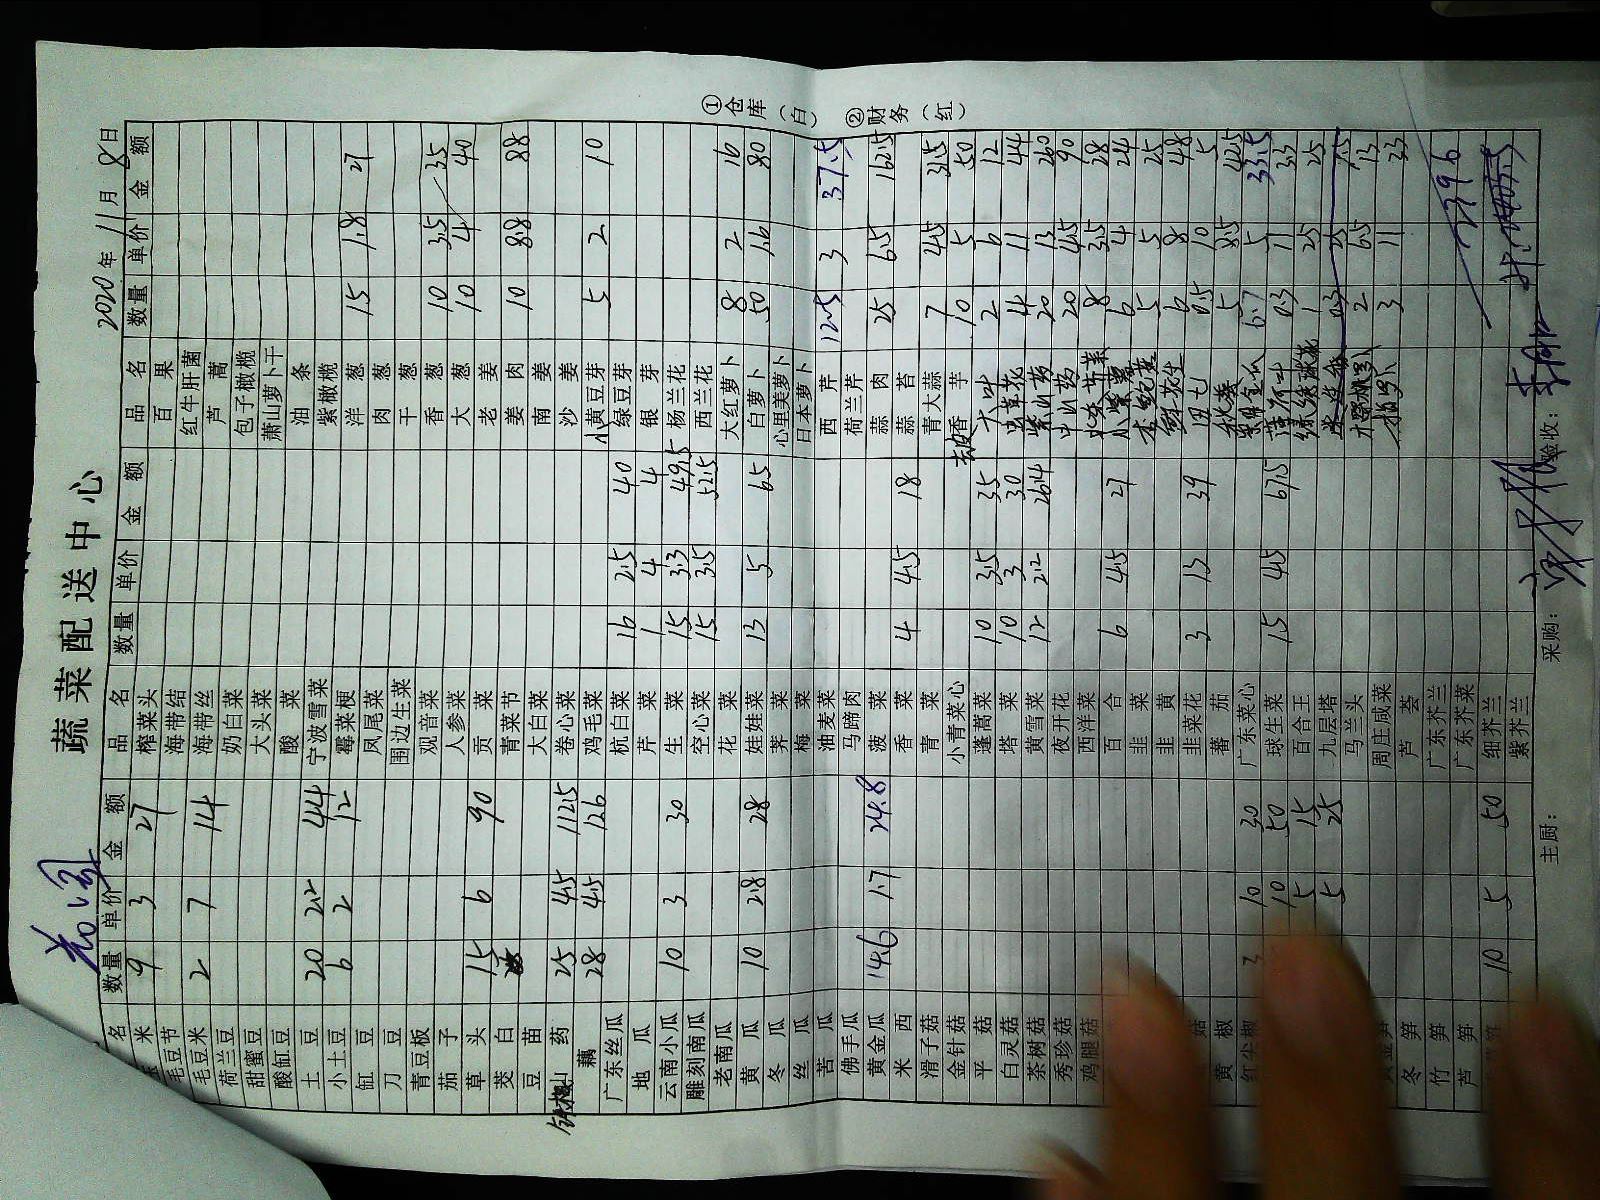 蔬菜配送中心
2020年 11月 8日
名 数量 单价 金额 品名 数量 单价 金额 品名 数量 单价 金额
米 9 3 27 榨菜头 百果
毛豆节 海带结 红牛肝菌
毛豆米 2 7 14 海带丝 芦蒿
荷兰豆 奶白菜 包子橄榄
甜蜜豆 大头菜 萧山萝卜干
酸缸豆 酸菜 油条
土豆 20 2.2 44 宁波雪菜 紫橄榄
小土豆 6 2 12 霉菜梗 洋葱 15 1.8 27
缸豆 凤尾菜 肉葱
刀豆 围边生菜 干葱
青豆板 观音菜 香葱 10 3.5 35
茄子 人参菜 大葱 10 4 40
草头 15 6 90 贡菜 老姜
茭白 青菜节 姜肉 10 8.8 88
豆苗 大白菜 南姜
山药 25 4.5 112.5 卷心菜 沙姜
藕 28 4.5 126 鸡毛菜 小黄豆芽 5 2 10
广东丝瓜 杭白菜 16 2.5 40 绿豆芽
地瓜 芹菜 1 4 4 银芽
云南小瓜 10 3 30 生菜 15 3.3 49.5 杨兰花
雕刻南瓜 空心菜 15 3.5 52.5 西兰花
老南瓜 花菜 大红萝卜 8 2 16
黄瓜 10 2.8 28 娃娃菜 13 5 65 白萝卜 50 1.6 80
冬瓜 荠菜 心里美萝卜
丝瓜 梅菜 日本萝卜
苦瓜 油麦菜 西芹 12.5 3 37.5
佛手瓜 马蹄肉 荷兰芹
黄金瓜 14.6 1.7 24.8 菠菜 蒜肉 25 6.5 162.5
米西 香菜 4 4.5 18 蒜苔
滑子菇 青菜 青大蒜 7 4.5 31.5
金针菇 小青菜心 去皮香芋 10 5 50
平菇 蓬蒿菜 10 3.5 35 大叶 2 6 12
白灵菇 塔菜 10 3 30 4 11 44
茶树菇 黄雪菜 12 2.2 26.4 紫山药 20 13 260
秀珍菇 夜开花 中山药 20 4.5 90
鸡腿菇 西洋菜 8 3.5 28
百合 6 4.5 27 小紫薯 6 4 24
韭菜 5 5 25
韭黄 鲜花生 6 8 48
菇 韭菜花 3 13 39 0.5 10 5
黄椒 蕃茄 秋葵 5 8.5 42.5
红尖椒 3 10 30 广东菜心 金瓜 6.7 5 33.5
10 50 球生菜 15 4.5 67.5 薄荷叶 0.3 11 3.3
5 15 百合王 1 25 25
5 25 九层塔 0.3 25 7.5
马兰头 2 6.5 13
周庄咸菜 3 11 33
冬笋 芦荟
竹笋 广东芥兰
芦笋 广东芥菜 2396
10 5 50 细芥兰
紫芥兰
主厨： 采购： 验收：
①仓库（白） ②财务（红）